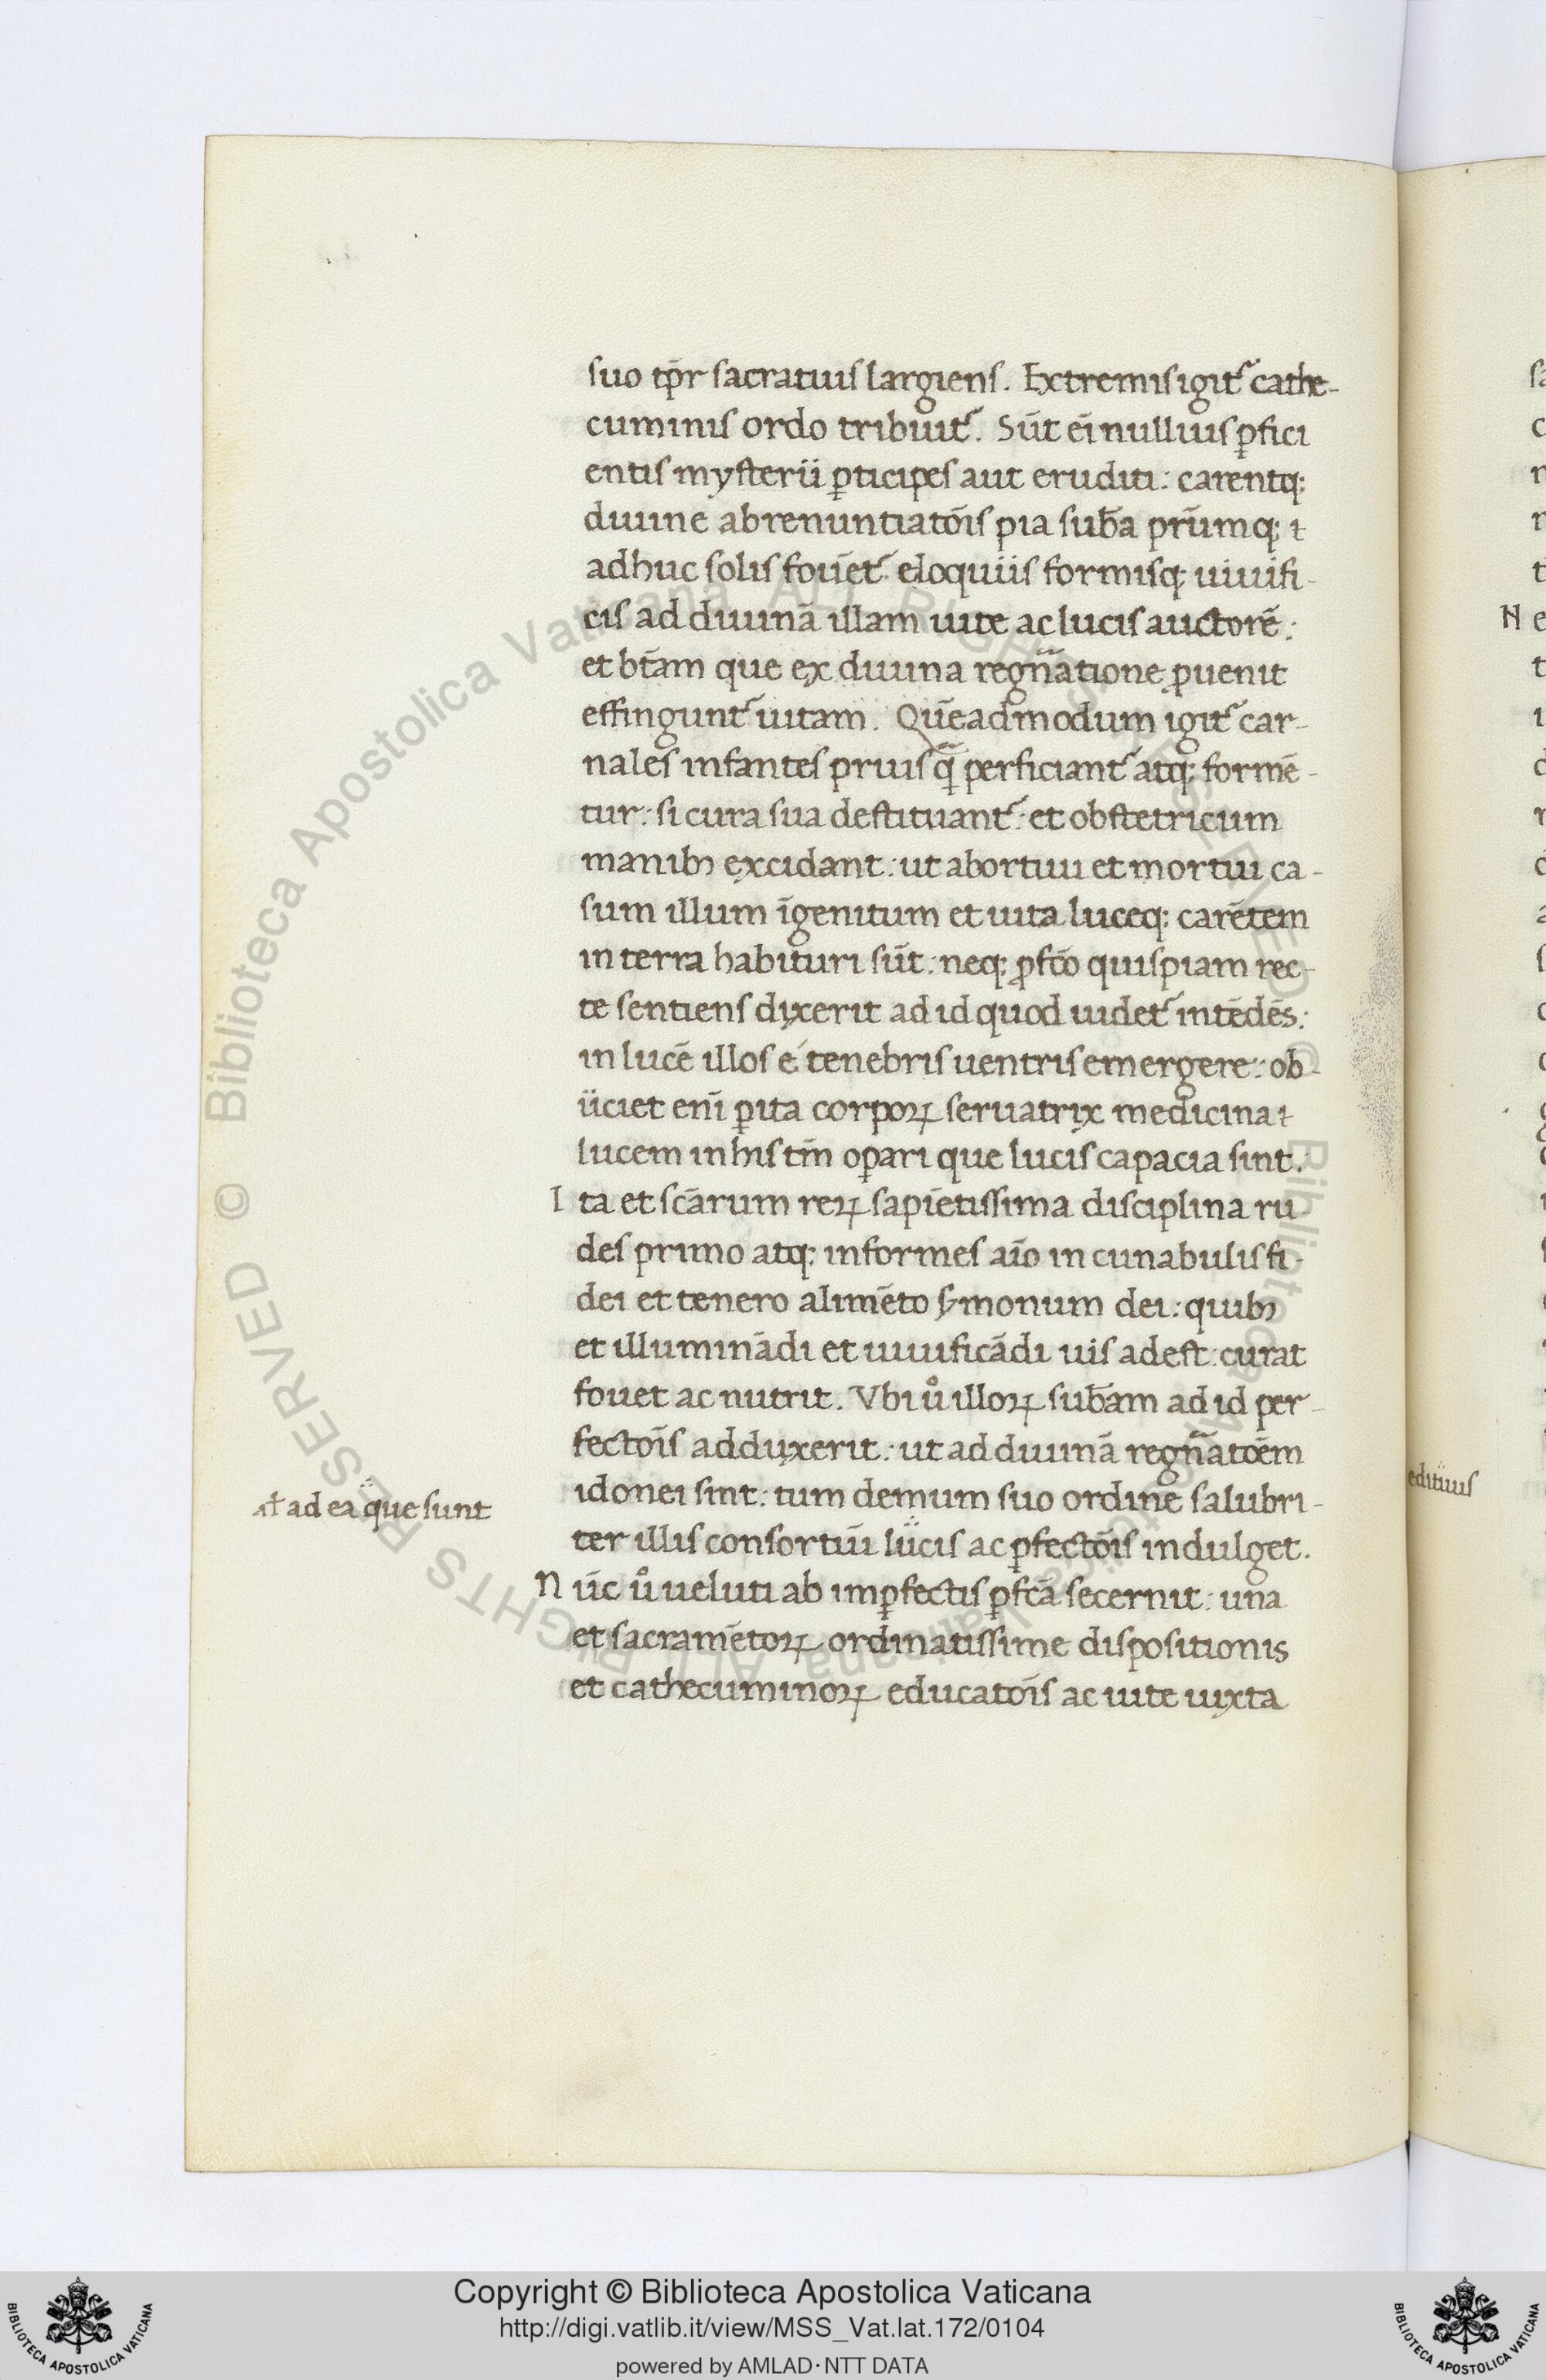 suo tp̄r sacratius largiens. Extremis igit᷑ cathe-
cuminis ordo tribuit᷑. Sūt eī nullius ꝑfici
entis mysterii ꝑticipes aut eruditi: carentq;
diuine abrenuntiatōis pia sub̄a prūmq; ⁊
adhuc solis fouēt᷑ eloquiis formisq; uiuifi-
cis ad diuinā illam uite ac lucis auctorē:
et bt̄am que ex diuina regn̄atione ꝓuenit
effingunt᷑ uitam. Quēadmodum igit᷑ car-
nales infantes prius q̄ perficiant᷑ atq; formē-
tur: si cura sua destituant᷑: et obstetricum
manibꝫ excidant: ut abortiui et mortui ca-
sum illum īgenitum et uita luceq; carētem
in terra habituri sūt: neq; ꝓfc̄o quispiam rec-
te sentiens dixerit ad id quod uidet᷑ intēdēs:
in lucē illos e tenebris uentris emergere: ob-
iiciet enī ꝑita corpoꝝ seruatrix medicina ⁊
lucem in his tm̄ oꝑari que lucis capacia sint.
Ita et sc̄arum reꝝ sapiētissima disciplina ru
des primo atq; informes aīo in cunabulis fi-
dei et tenero alimēto s̄monum dei: quibꝫ
et illuminādi et uiuificādi uis adest: curat
fouet ac nutrit. Vbi uͦ illoꝝ sub̄am ad id per-
fectōis adduxerit: ut ad diuinā regn̄atōem
idonei sint: tum demum suo ordine salubri-
at̄ ad ea que sunt
ter illis consortiū lucis ac ꝑfectōis indulget.
Nūc uͦ ueluti ab imꝑfectis ꝑfc̄a secernit: una
et sacramētoꝝ ordinatissime dispositionis
et cathecuminoꝝ educatōis ac uite iuxta
edituus
Copyright © Biblioteca Apostolica Vaticana
http://digi.vatlib.it/view/MSS_Vat.lat.172/0104
powered by AMLAD·NTT DATA
BIBLIOTECA APOSTOLICA VATICANA
BIBLIOTECA APOSTOLICA VATICANA
Biblioteca Apostolica Vaticana ALL RIGHTS RESERVED ©
Biblioteca Apostolica Vaticana ALL RIGHTS RESERVED ©